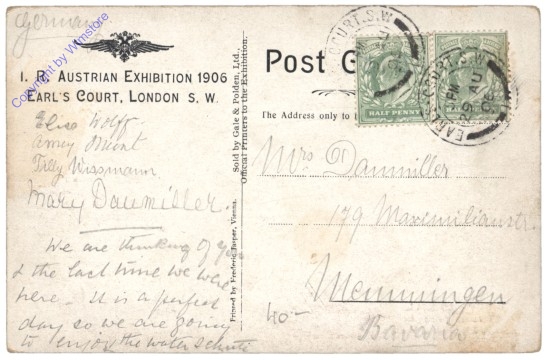 Germany
I. R. AUSTRIAN EXHIBITION 1906
EARL'S COURT, LONDON S. W.
Elise Wolff
Amey Blunt
Tilly Wissmann
Mary Daumiller.
We are thinking of you
& the last time we were
here – It is a perfect
day so we are going
to enjoy the water schute
Copyright by Wimstore.
Sold by Gale & Polden, Ltd.,
Official Printers to the Exhibition.
Printed by Frederic Jasper, Vienna.
Post
The Address only to
HALF PENNY
EARL'S COURT. S.W
PM
9 AU
COURT. S.W
Mrs Daumiller
179 Maximilianstr.
Memmingen
Bavaria
40.–